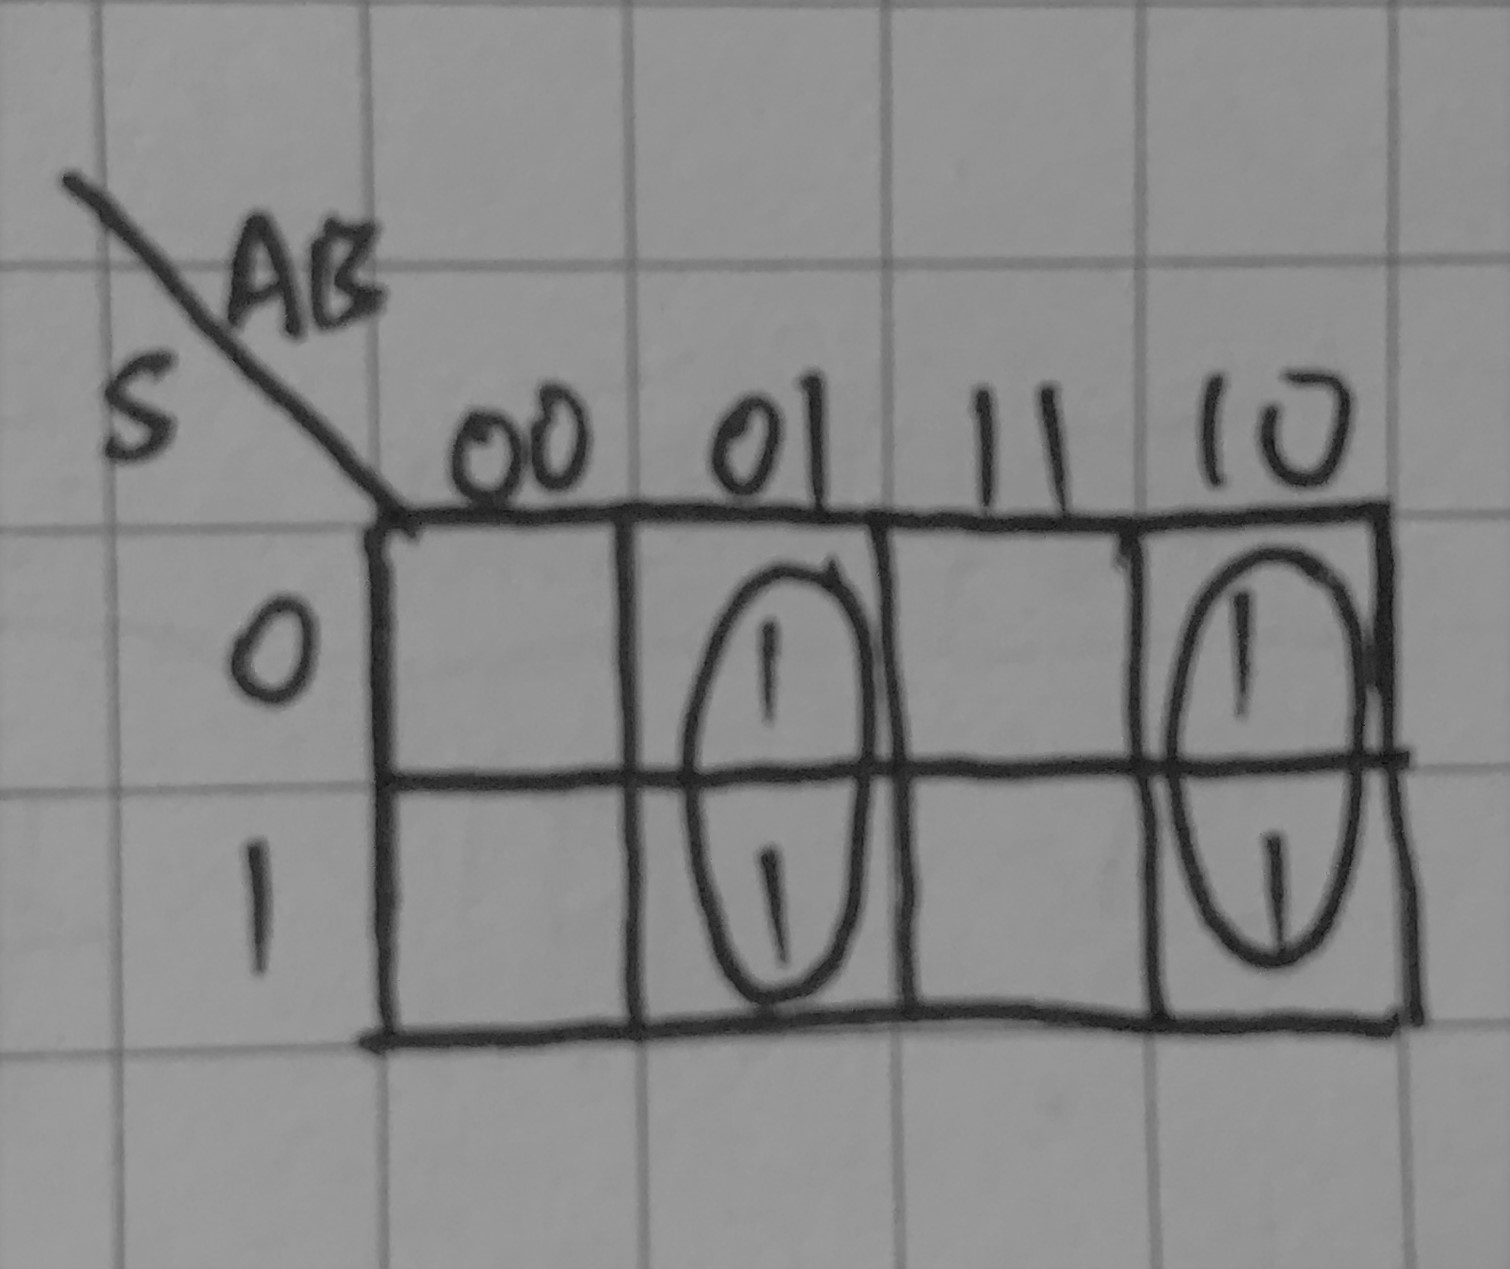 AB
S
00 01 11 10
0 1 1
1 1 1